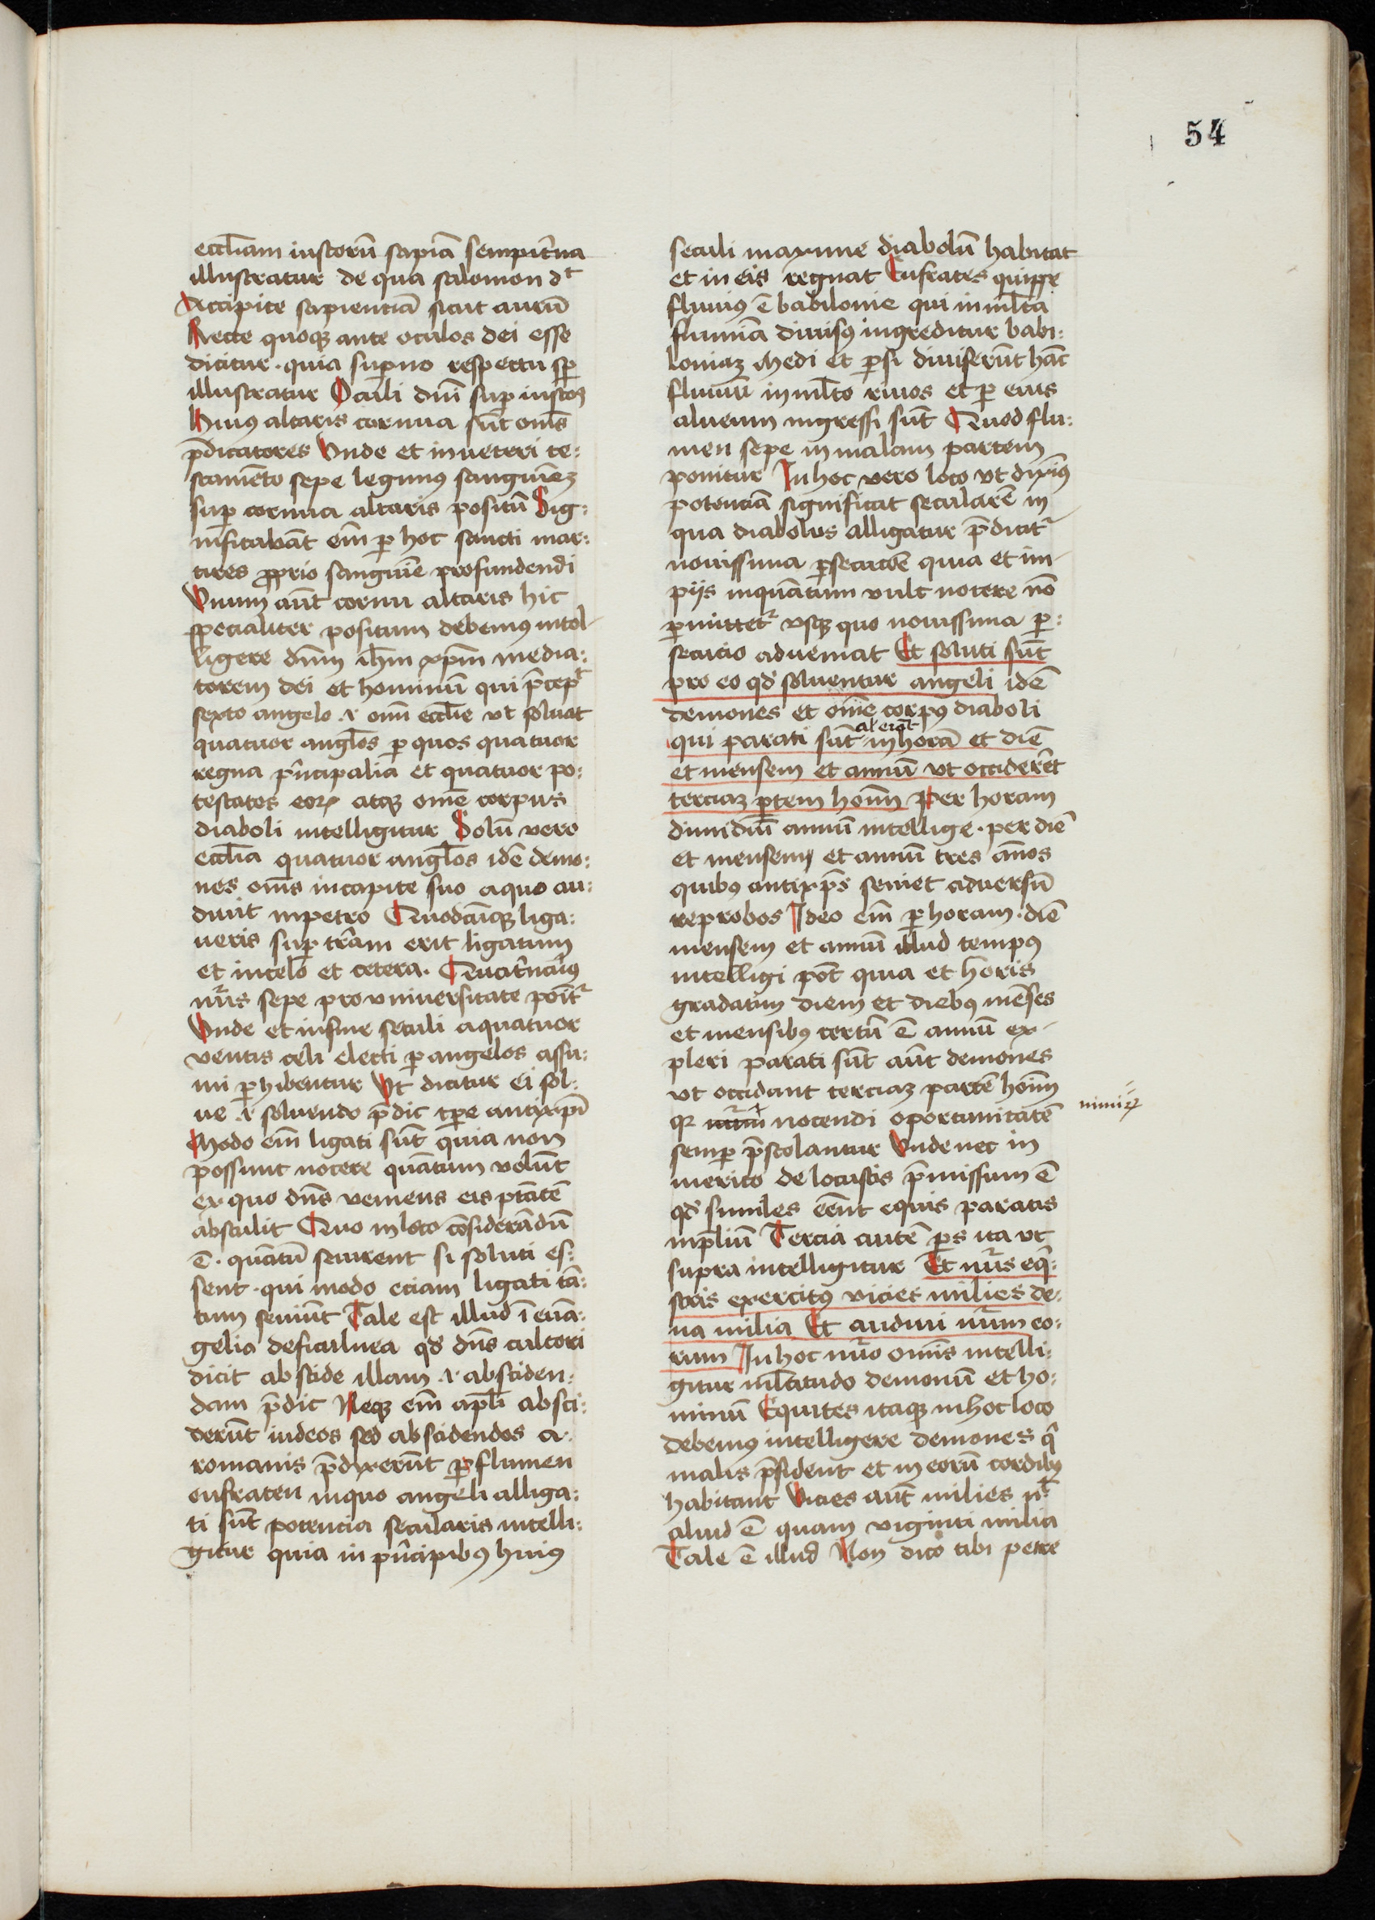 54
eccl̄iam iustorū sapiā sempit̄na
illustratur de qua salomon dt
Accipite sapientiā sicut aurū
Recte quoqꝫ ante oculos dei esse
dicitur · quia sup̄no respectu sp̄
illustratur Oculi dn̄i sup̄ iustos
Huius altaris cornua sūt om̄s
p̄dicatores Vnde et in veteri te:
stamēto sepe legimus sanguinēꝫ
sup̄ cornua altaris positū Sig:
nificabāt em̄ ꝑ hoc sancti mar:
tires ꝓprio sanguīe profundendi
Vnum aūt cornu altaris hic
specialiter positum debemus intel-
ligere dn̄m ih̄m xp̄m media:
torem dei et hominū qui p̄cepit
sexto angelo .i. om̄i eccl̄ie vt soluat
quatuor angl̄os ꝑ quos quatuor
regna p̄ncipalia et quatuor po:
testates eoꝝ atqꝫ om̄e corpus
diaboli intelligitur Solū vero
eccl̄ia quatuor angl̄os idē demo:
nes om̄s in capite suo a quo au:
diuit in petro Quodcūqꝫ liga:
ueris sup̄ tr̄am erit ligatum
et in celo et cetera · Quat̄narius
nūs sepe pro vniuersitate poīt᷑
Vnde et in fine seculi a quatuor
ventis celi electi ꝑ angelos assu:
mi ꝑhibentur Vt dicitur ei sol:
ue .i. soluendo p̄dic tꝑe antixp̄i
Modo em̄ ligati sūt quia non
possunt nocere quātum volūt
ex quo dn̄s veniens eis ptātē
abstulit Quo in loco cōsiderādū
ē · quātū seuirent si soluti es:
sent · qui modo eciam ligati tā:
tum seuiūt Tale est illud ī euā:
gelio de ficulnea qd̄ dn̄s cultori
dicit abscide illam .i. absciden:
dam p̄dic Neqꝫ em̄ apl̄i absci:
derūt iudeos sed abscidendos a
romanis p̄dixerūt ꝑ flumen
eufraten in quo angeli alliga:
ti sūt potencia secularis intelli:
gitur quia in p̄ncipibus huius
seculi maxime diabolū habitat
et in eis regnat Eufrates quippe
fluuius ē babilonie qui in ml̄ta
flumīa diuisus ingreditur babi:
loniaꝫ Medi et ꝑsi diuiserūt hāc
fluuiū in ml̄to riuos et ꝑ eius
alueum ingressi sūt Quod flu:
men sepe in malam partem
ponitur In hoc vero loco vt dixim᷒
potenciā significat secularē in
qua diabolus alligatur p̄dicit᷑
nouissima ꝑsecucōe quia et im-
pijs inquātum vult nocere nō
ꝑmittet᷑ vsqꝫ quo nouissima ꝑ:
secucio adueniat Et soluti sūt
pro eo qd̄ soluentur angeli idē
demones et om̄e corpus diaboli
qui parati sūt in horā et diē
al erāt
et mensem et annū vt occiderēt
terciaꝫ ꝑtem hoīm Per horam
dimidiū annū intellige · per diē
et mensem et annū tres ānos
quibus antixp̄s seuiet aduersū
reprobos Ideo em̄ ꝑ horam · diē
mensem et annū illud tempus
intelligi pōt quia et horis
gradatim diem et diebus mēses
et mensibus certū ē annū ex-
pleri parati sūt aūt demones
vt occidant terciaꝫ partē hoīm
nocendi oportunitatē
semp̄ p̄stolantur Vnde nec in
merito de locustis p̄missum ē
qd̄ similes eēnt equis paratis
in p̄lium Tercia autē ꝑs ita vt
supra intelligitur Et nūs eq̄:
stris exercitus vicies milies de:
na milia Et audiui nūm eo:
rum In hoc nūo om̄is intelli:
gitur ml̄titudo demonū et ho:
minū Equites itaqꝫ in hoc loco
debemus intelligere demones q̄
malis p̄sident et in eorū cordibus
habitant Vicies aūt milies nͨ
aliud ē quam viginti milia
Tale ē illud Non dico tibi petre